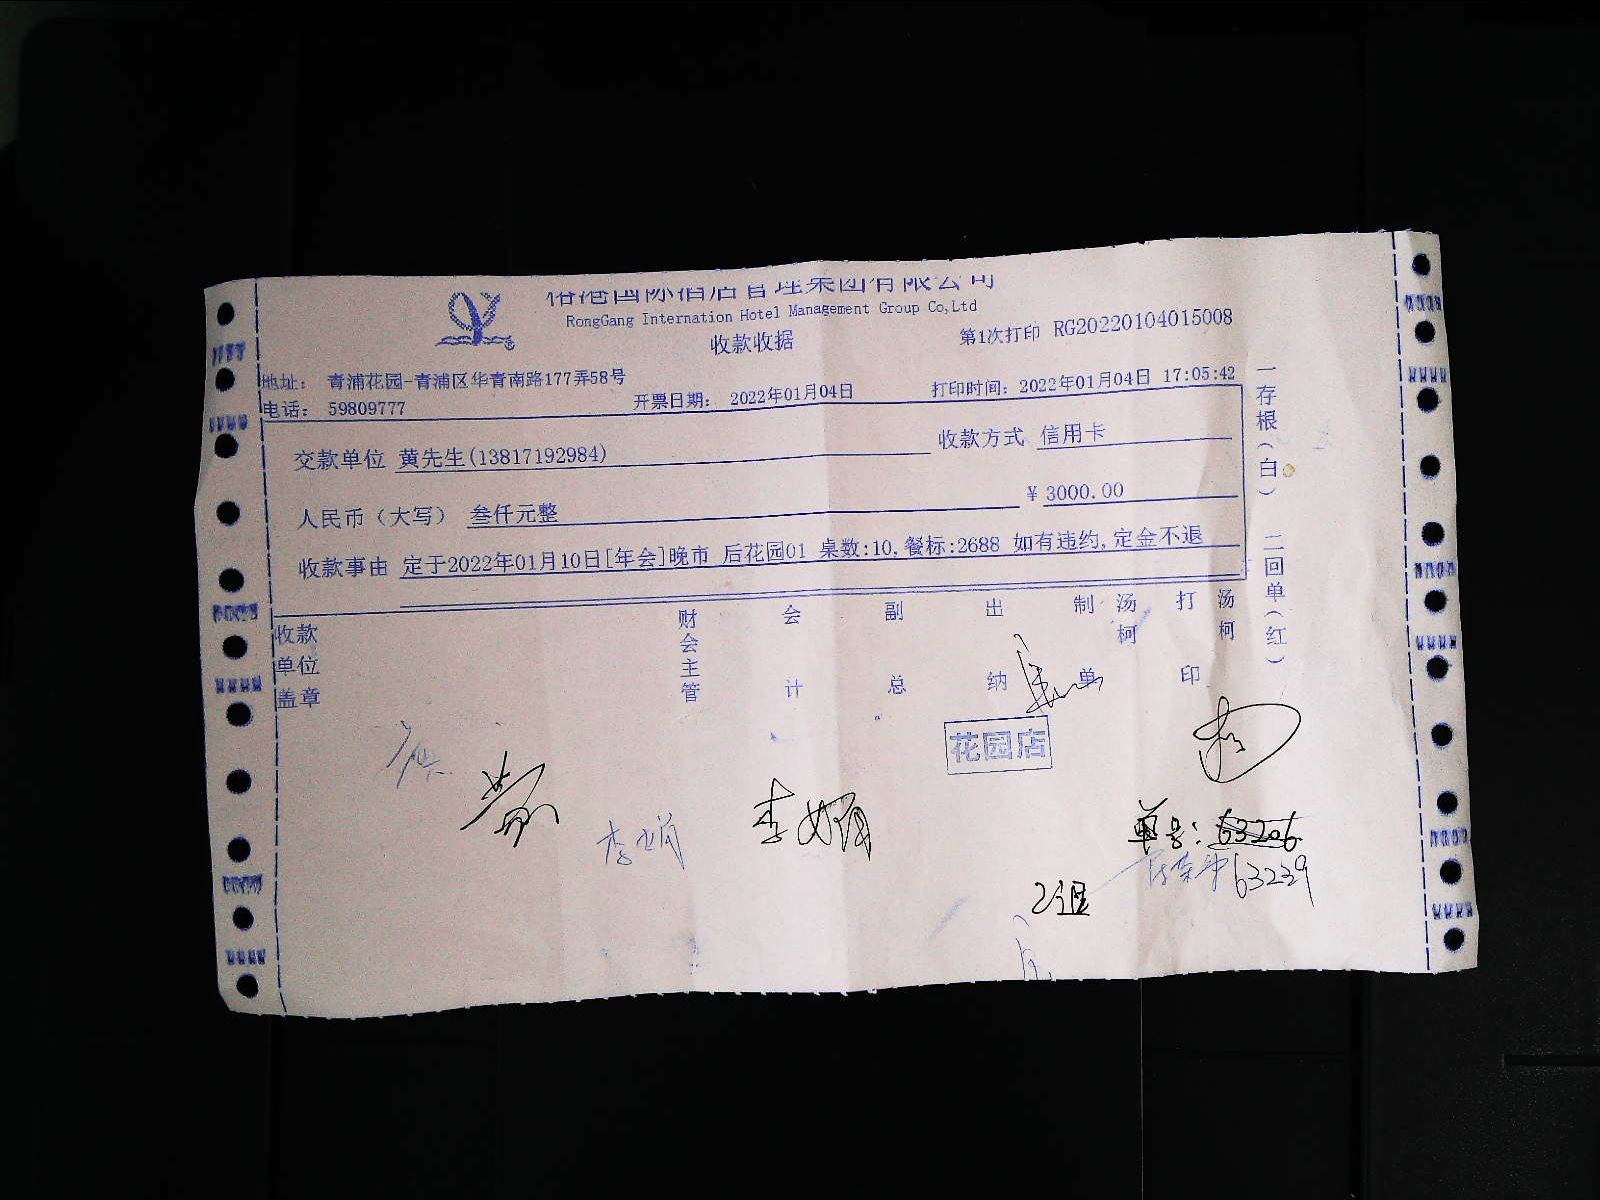 国际酒店管理集团有限公司
RongGang Internation Hotel Management Group Co,Ltd
收款收据
第1次打印 RG20220104015008
地址： 青浦花园-青浦区华青南路177弄58号
电话： 59809777
开票日期： 2022年01月04日
打印时间：2022年01月04日 17:05:42
交款单位 黄先生(13817192984)
收款方式 信用卡
人民币（大写） 叁仟元整
¥ 3000.00
收款事由 定于2022年01月10日[年会]晚市 后花园01 桌数:10,餐标:2688 如有违约,定金不退
一存根（白） 二回单（红）
收款单位盖章
财会主管
会计
副总
出纳
制单
汤柯
打印
汤柯
花园店
单号：63206
63239